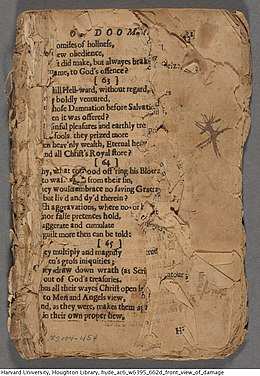 Or DOOM
omises of holiness,
ew obedience,
it did make, but alwayes brake
ame, to God's offence?
[ 63 ]
hill Hell-ward, without regard,
boldly ventured,
hose Damnation before Salvati
en it was offered?
inful pleasures and earthly tre
fools, they prized more
en heav'nly wealth, Eternal he
nd all Christ's Royal store?
[ 64 ]
hy, what ood off'ring his Blou
to wa from their sin,
hey would embrace no saving Grace
but liv'd and dy'd therein?
h aggravations, where no
nor false pretences hold,
aggerate and cumulate
guilt more then can be told:
[ 65 ]
ey multiply and magnify
en's gross iniquities;
ey draw down wrath (as Scri
out of God's treasuries.
us all their wayes Christ open l
to Men and Angels view,
nd, as they were, makes them ap
in their own proper hew.
Harvard University, Houghton Library, hyde_ac6_w6395_662d_front_view_of_damage